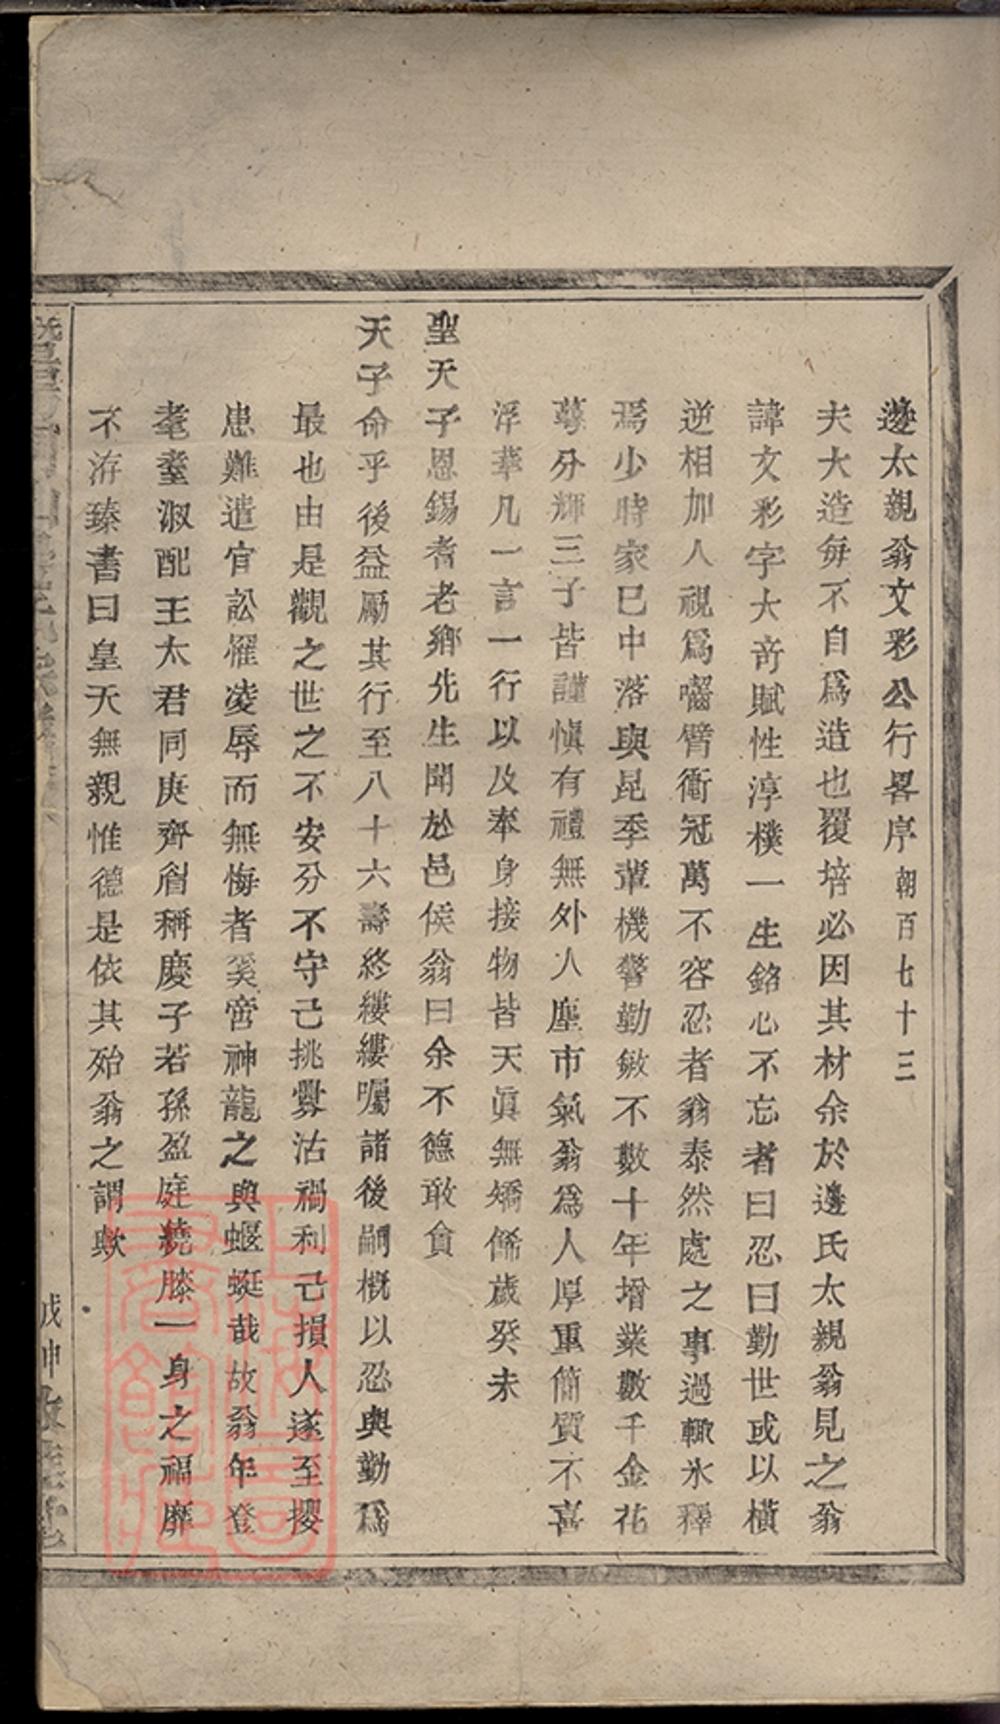 邊太親翁文彩公行畧序朝百七十三
夫大造每不自爲造也覆培必因其材余於邊氏太親翁見之翁
諱文彩字大奇賦性淳樸一生銘心不忘者曰忍曰勤世或以橫
逆相加人視爲嚙臂衝冠萬不容忍者翁泰然處之事過輙氷釋
焉少時家巳中落與昆季輩機警勤敏不數十年增業數千金花
萼分輝三子皆謹愼有禮無外人塵市氣翁爲人厚重簡質不喜
浮華凡一言一行以及奉身接物皆天眞無矯僞歲癸未
聖天子恩錫耆老鄉先生聞於邑侯翁曰余不德敢貪
天子命乎後益勵其行至八十六壽終縷縷囑諸後嗣概以忍與勤爲
最也由是觀之世之不安分不守己挑釁沽禍利己損人遂至攖
患難遭官訟罹凌辱而無悔者奚啻神龍之與蝘蜓哉故翁年登
耄耋淑配王太君同庚齊眉稱慶子若孫盈庭繞膝一身之福靡
不洊臻書曰皇天無親惟德是依其殆翁之謂歟
戊申